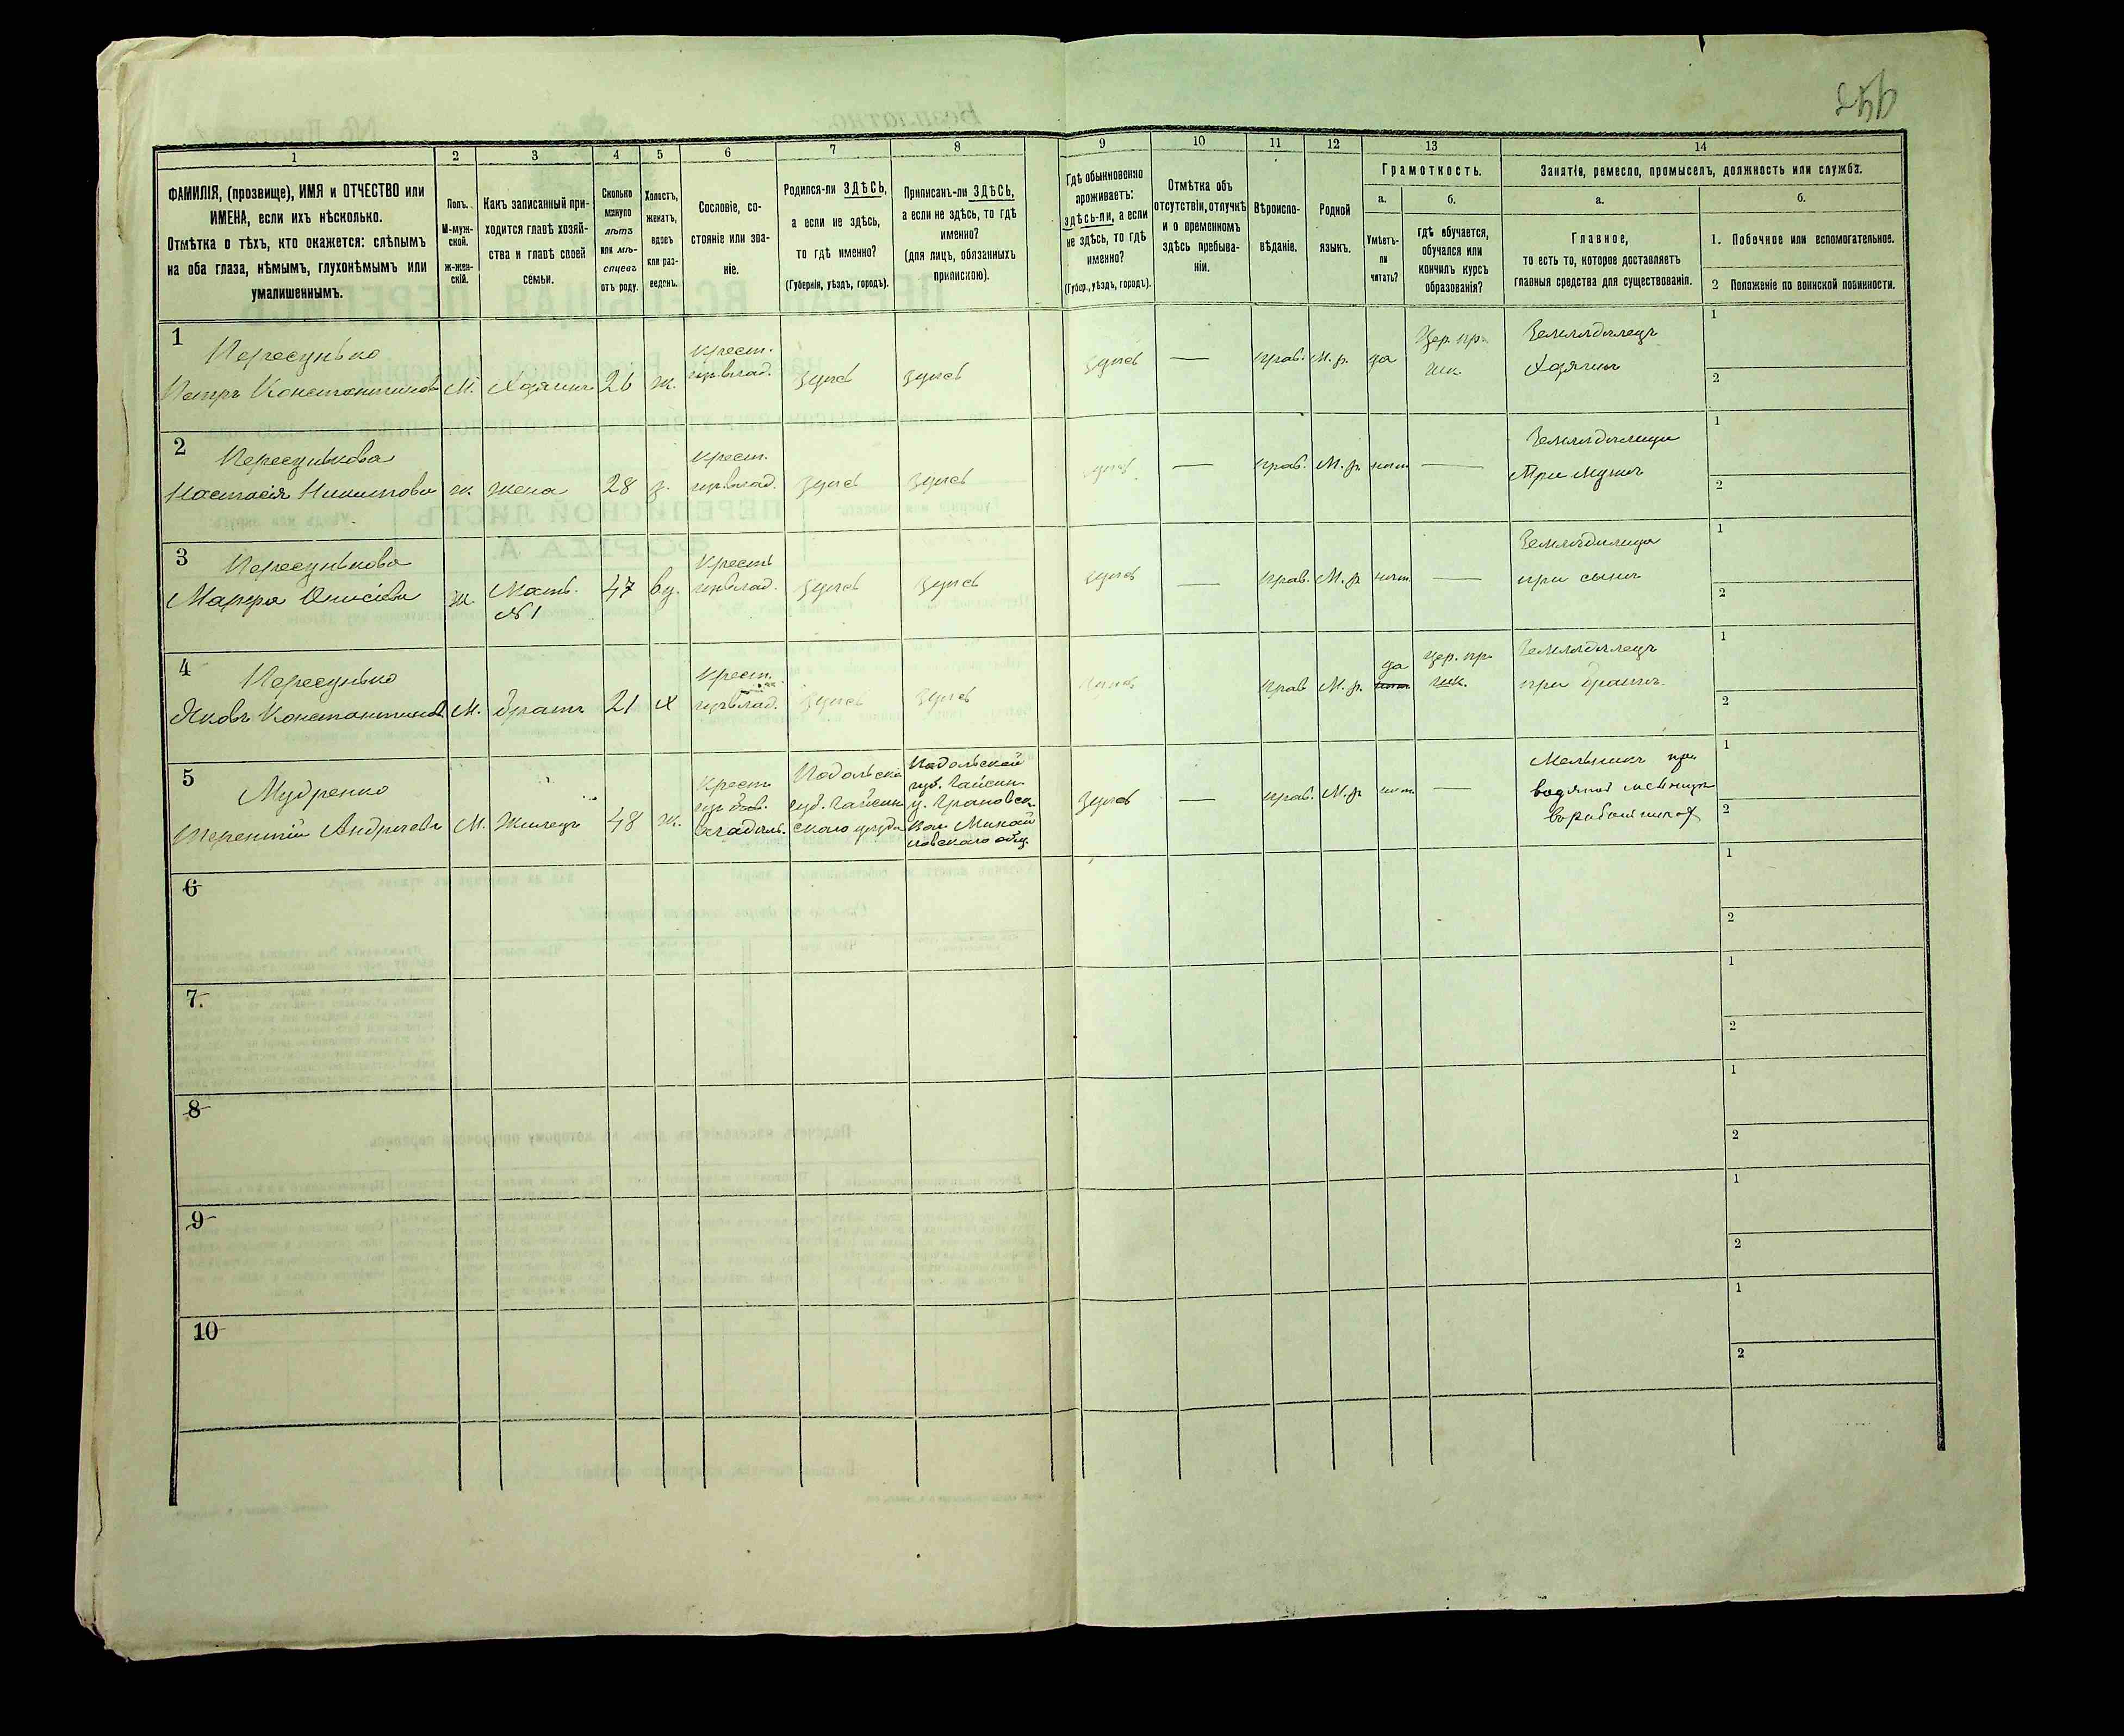 1
2
3
4
5
6
7
8
9
10
11
12
13
14
ФАМИЛІЯ, (прозвище), ИМЯ и ОТЧЕСТВО или
ИМЕНА, если ихъ нѣсколько.
Отмѣтка о тѣхъ, кто окажется: слѣпымъ
на оба глаза, нѣмымъ, глухонѣмымъ или
умалишеннымъ.
Полъ.
М-муж-
ской.
ж-жен-
скій.
Какъ записанный при-
ходится главѣ хозяй-
ства и главѣ своей
семьи.
Сколько
минуло
лѣтъ
или мѣ-
сяцевъ
отъ роду.
Холостъ,
женатъ,
вдовъ
или раз-
веденъ.
Сословіе, со-
стояніе или зва-
ніе.
Родился-ли ЗДѢСЬ,
а если не здѣсь,
то гдѣ именно?
(Губернія, уѣздъ, городъ).
Приписанъ-ли ЗДѢСЬ,
а если не здѣсь, то гдѣ
именно?
(для лицъ, обязанныхъ
припискою).
Гдѣ обыкновенно
проживаетъ:
здѣсь-ли, а если
не здѣсь, то гдѣ
именно?
(Губер., уѣздъ, городъ).
Отмѣтка объ
отсутствіи, отлучкѣ
и о временномъ
здѣсь пребыва-
ніи.
Вѣроиспо-
вѣданіе.
Родной
языкъ.
Грамотность.
а.
Умѣетъ-
ли
читать?
б.
гдѣ обучается,
обучался или
кончилъ курсъ
образованія?
Занятія, ремесло, промыселъ, должность или служба.
а.
Главное,
то есть то, которое доставляетъ
главныя средства для существованія.
б.
1. Побочное или вспомогательное.
2 Положеніе по воинской повинности.
1
Пересунько
Петръ Константиновъ М. Хозяинъ 26 ж. крест. здѣсь здѣсь здѣсь — прав. М. р. да Цер. пр. шк. Земледѣлецъ Хозяинъ
1
2
2
Пересунькова
Настасія Никитова ж жена 28 з. крест. здѣсь здѣсь здѣсь — прав. М. р. нѣтъ — Земледѣлица При мужѣ
1
2
3
Пересунькова
Марфа ж. Мать №1 47 вд. Крест. здѣсь здѣсь здѣсь — прав. М. р. нѣтъ — Земледѣлица при сынѣ
1
2
4
Пересунько
Яковъ Константиновъ М. братъ 21 х Крест. здѣсь здѣсь здѣсь прав М. р. да цер. пр. шк. Земледѣлецъ при братѣ
1
2
5
Мудренко
Терентій Андреевъ М. Жилецъ 48 ж. Крест. изъ бывш. владѣль.
Подольской губ. Гайсин скаго уѣзда
Подольской губ. Гайсин. у. Грановск. вол.
здѣсь — прав. М. р. нѣтъ —
Мельникъ при
водяной мельницѣ
1
2
6
1
2
7.
1
2
8
1
2
9
1
2
10
1
2